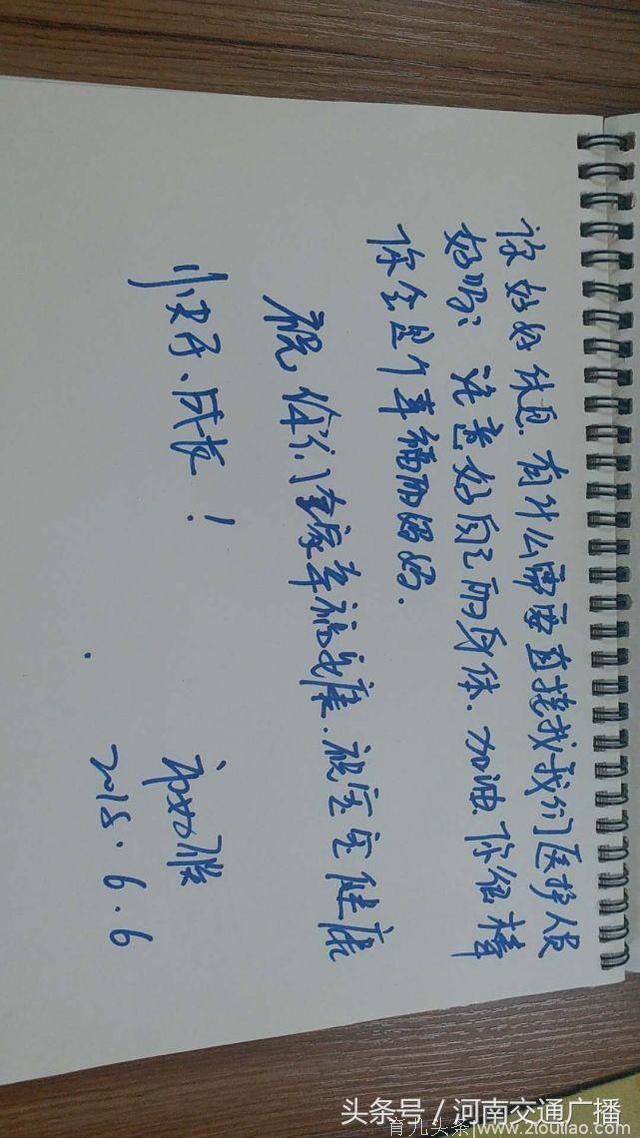 你好好休息.有什么需要直接找我们医护人员
好吗?注意好自己的身体.加油.你很棒
你会是个幸福的妈妈.
祝你们全家幸福安康.祝宝宝健康
快乐、成长!
2018.6.6
头条号 / 河南交通广播
育儿头条